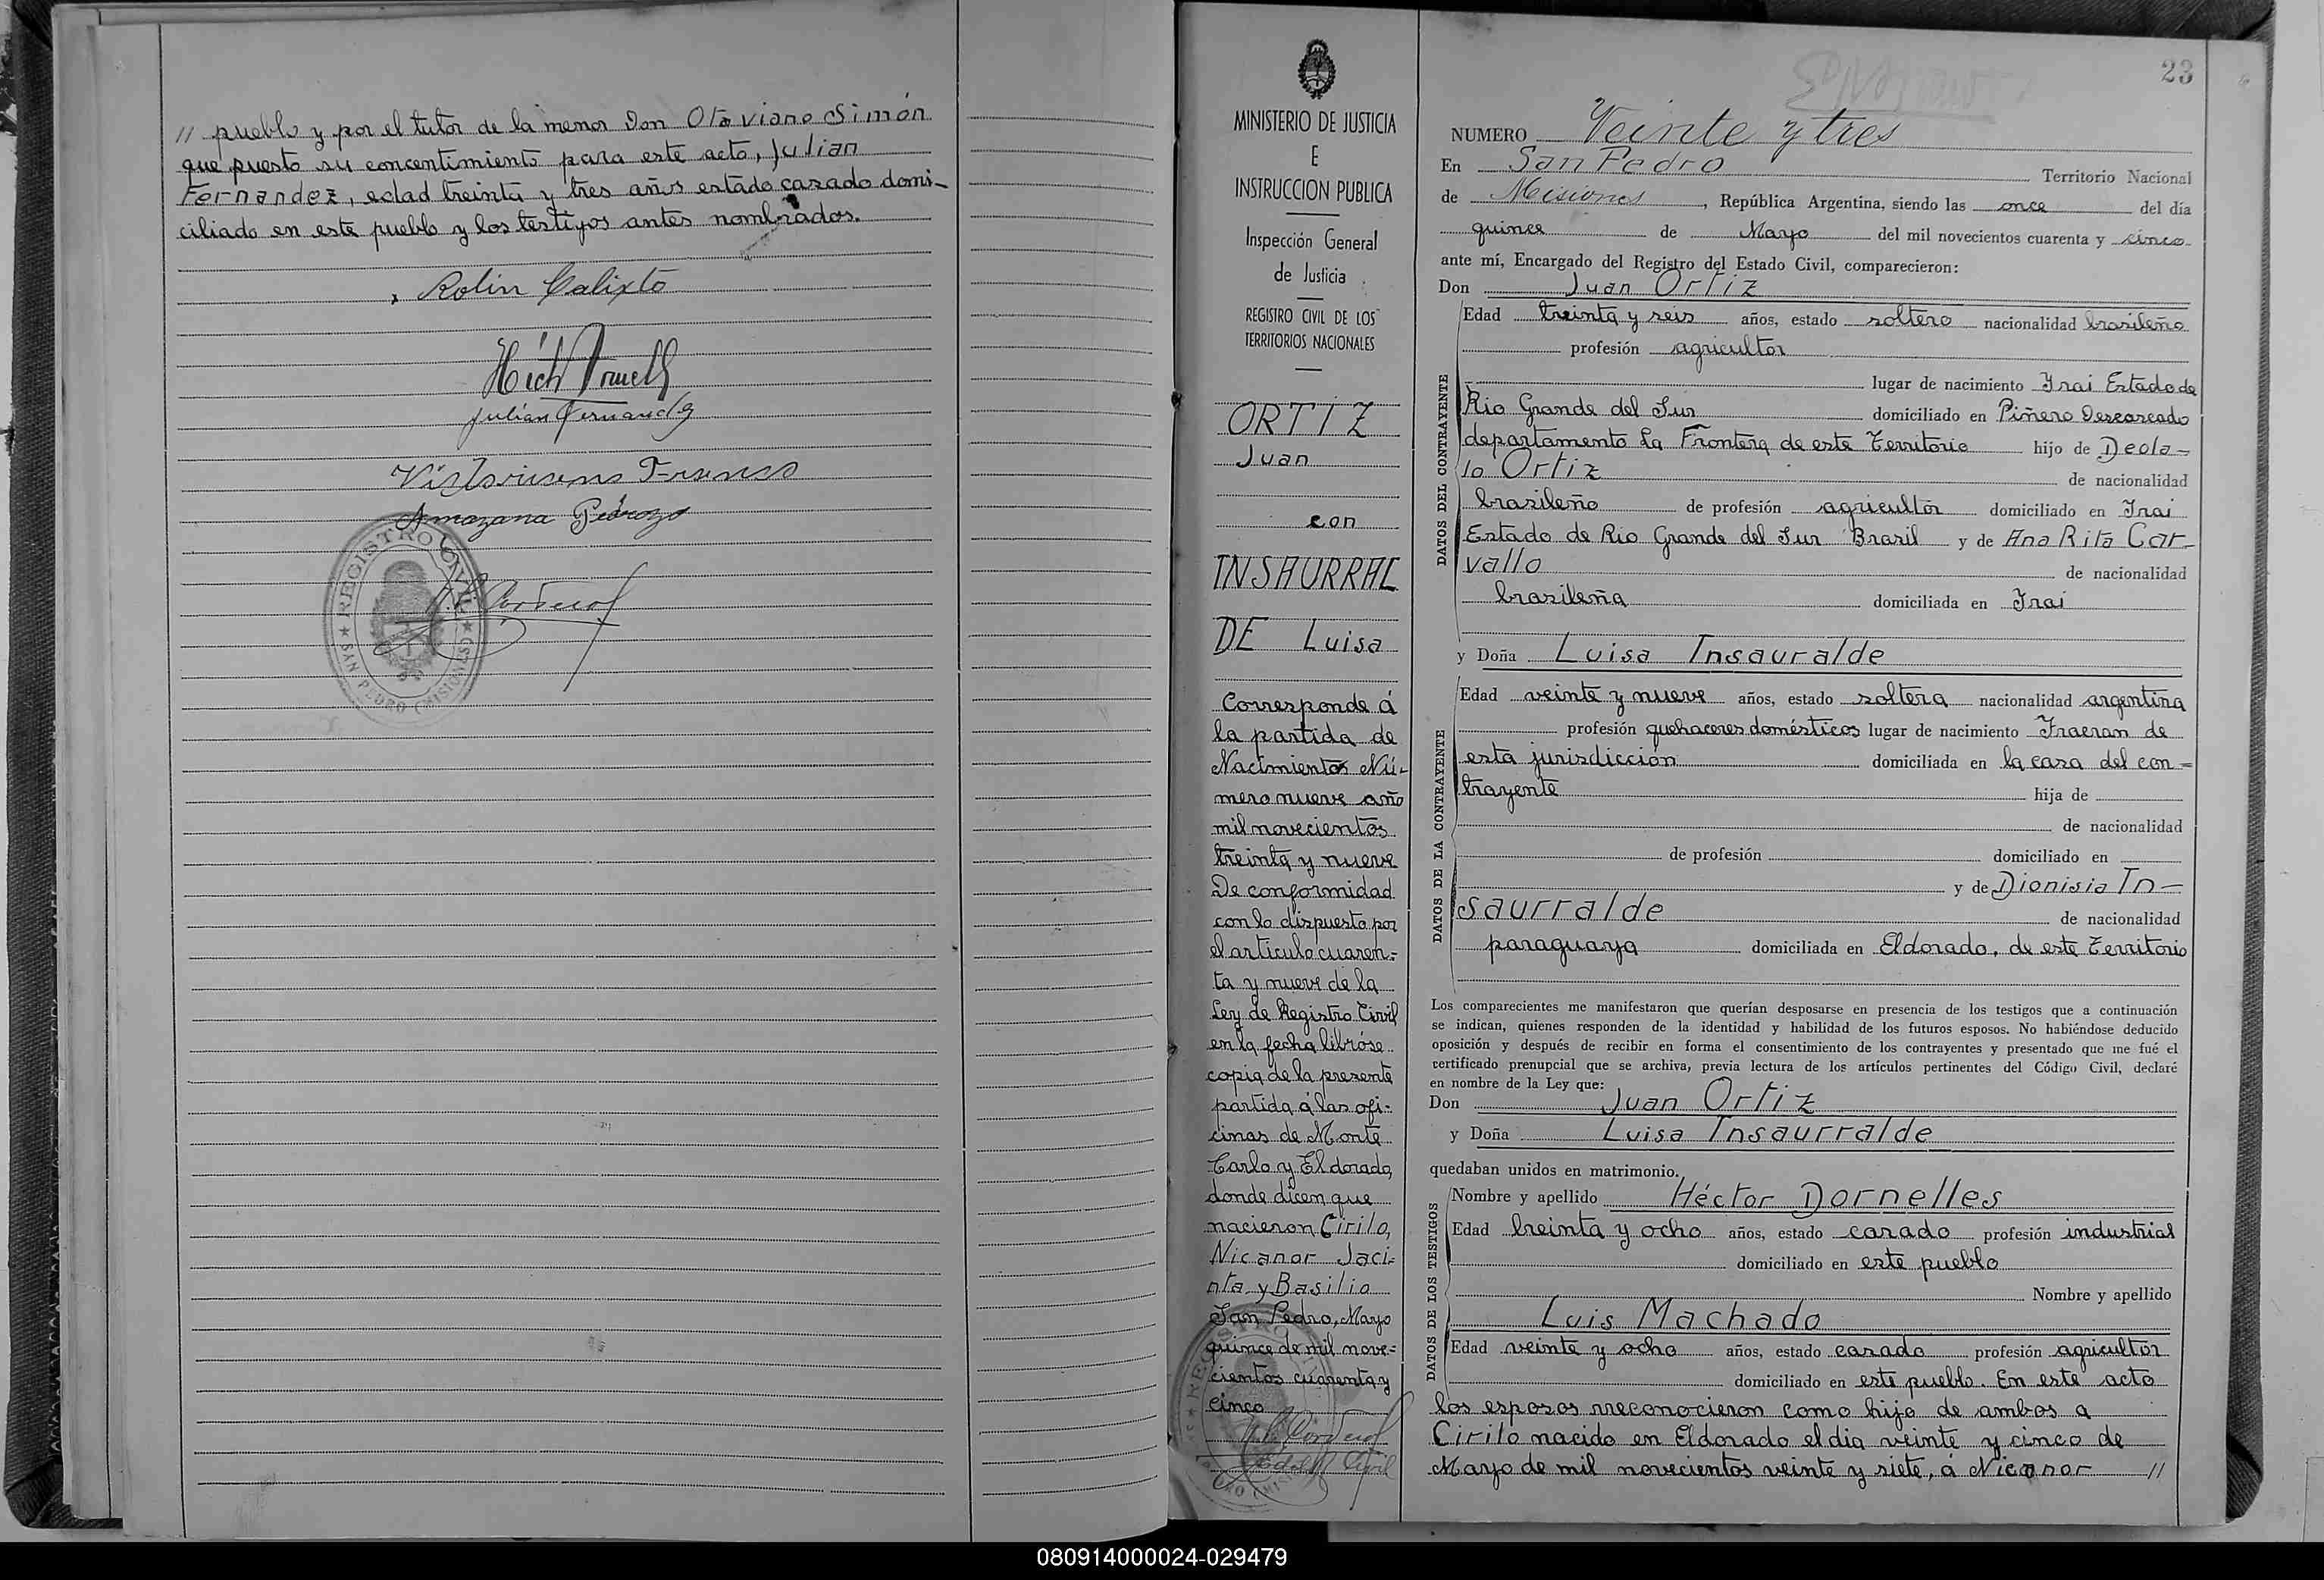 // pueblo y por el tutor de la menor Don Otaviano Simón
que puesto su concentimiento para este acto, Julian
Fernandez, edad treinta y tres años estado casado domi-
ciliado en este pueblo y los testigos antes nombrados.
Rolin Calixto
Julián Fernandez
Victoriano Franco
Amazana Pedrozo
REGISTRO CIVIL
SAN PEDRO (MISIONES)
MINISTERIO DE JUSTICIA
E
INSTRUCCION PUBLICA
Inspección General
de Justicia
REGISTRO CIVIL DE LOS
TERRITORIOS NACIONALES
ORTIZ
Juan
con
INSAURRAL
DE Luisa
Corresponde á
la partida de
Nacimientos Nú-
mero nueve año
mil novecientos
treinta y nueve
De conformidad
con lo dispuesto por
el articulo cuaren-
ta y nueve de la
Ley de Registro Civil
en la fecha libróse
copia de la presente
partida á las ofi-
cinas de Monte
Carlo y Eldorado,
donde dicen que
nacieron Cirilo,
Nicanor Jaci-
nta y Basilio
San Pedro, Mayo
quince de mil nove-
cientos cuarenta y
cinco
23
NUMERO Veinte y tres
En San Pedro Territorio Nacional
de Misiones, República Argentina, siendo las once del día
quince de Mayo del mil novecientos cuarenta y cinco
ante mí, Encargado del Registro del Estado Civil, comparecieron:
Don Juan Ortiz
DATOS DEL CONTRAYENTE
Edad treinta y seis años, estado soltero nacionalidad brasileño
profesión agricultor
lugar de nacimiento Irai Estado de
Rio Grande del Sur domiciliado en Piñero Descoreado
departamento La Frontera de este Territorio hijo de Deola-
lo Ortiz de nacionalidad
brasileño de profesión agricultor domiciliado en Irai
Estado de Rio Grande del Sur Brasil y de Ana Rita Car-
vallo de nacionalidad
brasileña domiciliada en Irai
y Doña Luisa Insauralde
DATOS DE LA CONTRAYENTE
Edad veinte y nueve años, estado soltera nacionalidad argentina
profesión quehaceres domésticos lugar de nacimiento Fracran de
esta jurisdicción domiciliada en la casa del con-
trayente hija de
de nacionalidad
de profesión domiciliado en
y de Dionisia In-
saurralde de nacionalidad
paraguaya domiciliada en Eldorado, de este Territorio
Los comparecientes me manifestaron que querían desposarse en presencia de los testigos que a continuación
se indican, quienes responden de la identidad y habilidad de los futuros esposos. No habiéndose deducido
oposición y después de recibir en forma el consentimiento de los contrayentes y presentado que me fué el
certificado prenupcial que se archiva, previa lectura de los artículos pertinentes del Código Civil, declaré
en nombre de la Ley que:
Don Juan Ortiz
y Doña Luisa Insaurralde
quedaban unidos en matrimonio.
DATOS DE LOS TESTIGOS
Nombre y apellido Héctor Dornelles
Edad treinta y ocho años, estado casado profesión industrial
domiciliado en este pueblo
Nombre y apellido
Luis Machado
Edad veinte y ocho años, estado casado profesión agricultor
domiciliado en este pueblo. En este acto
los esposos rreconocieron como hijo de ambos a
Cirilo nacido en Eldorado el dia veinte y cinco de
Mayo de mil novecientos veinte y siete, á Nicanor //
080914000024-029479